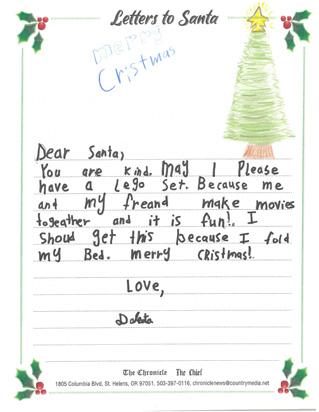 Letters to Santa
merry
Cristmas
Dear Santa,
You are kind. May I Please
have a Lego Set. Because me
and my freand make movies
togeather and it is fun!. I
Shoud get this because I fold
my Bed. merry CRistmas!.
Love,
Dakota
The Chronicle The Chief
1805 Columbia Blvd, St. Helens, OR 97051, 503-397-0116, chroniclenews@countrymedia.net